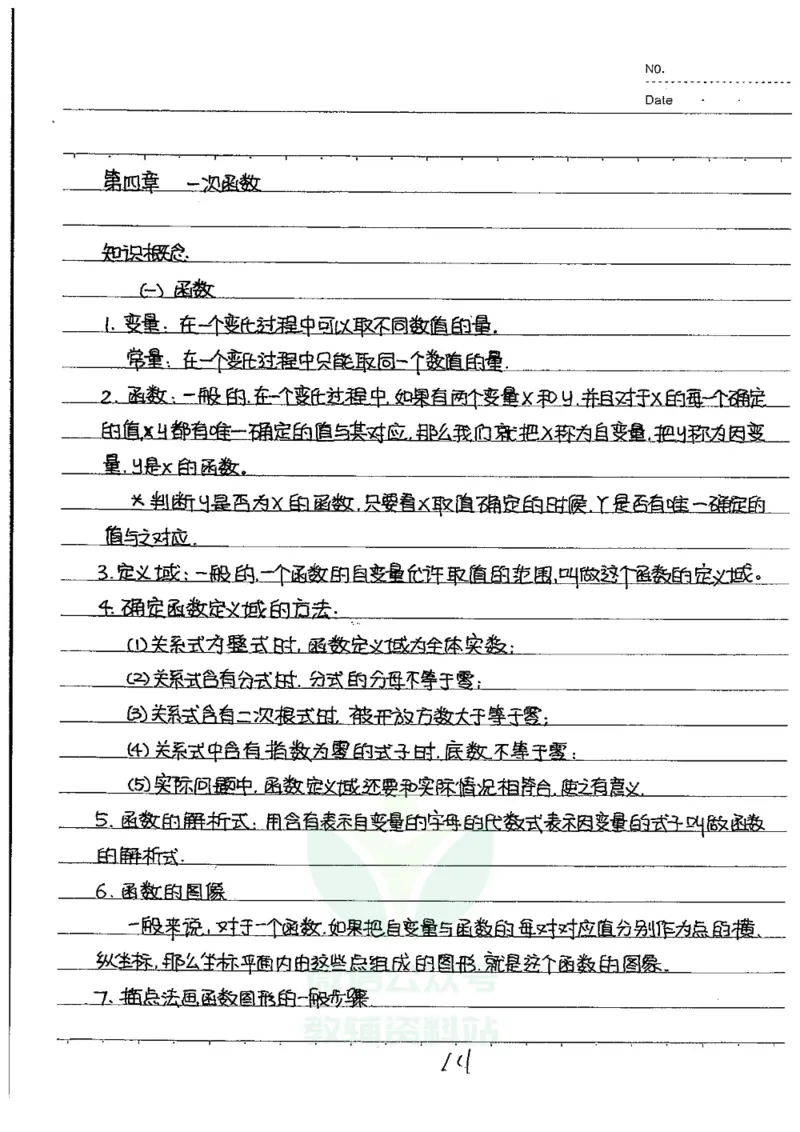 NO.
Date
第四章 一次函数
知识概念
(一) 函数
1. 变量：在一个变化过程中可以取不同数值的量.
常量：在一个变化过程中只能取同一个数值的量.
2. 函数：一般的,在一个变化过程中,如果有两个变量X和y,并且对于X的每一个确定
的值,x y都有唯一确定的值与其对应,那么我们就把X称为自变量,把y称为因变
量,y是x的函数。
* 判断y是否为X的函数,只要看X取值确定的时候,Y是否有唯一确定的
值与之对应.
3.定义域：一般的,一个函数的自变量允许取值的范围,叫做这个函数的定义域。
4. 确定函数定义域的方法：
(1)关系式为整式时,函数定义域为全体实数；
(2)关系式含有分式时,分式的分母不等于零；
(3)关系式含有二次根式时,被开放方数大于等于零；
(4)关系式中含有指数为零的式子时,底数不等于零；
(5)实际问题中,函数定义域还要和实际情况相符合,使之有意义.
5. 函数的解析式：用含有表示自变量的字母的代数式表示因变量的式子叫做函数
的解析式.
6. 函数的图像
一般来说,对于一个函数,如果把自变量与函数的每对对应值分别作为点的横、
纵坐标,那么坐标平面内由这些点组成的图形,就是这个函数的图象.
7. 描点法画函数图形的一般步骤
微信公众号
教辅资料站
14